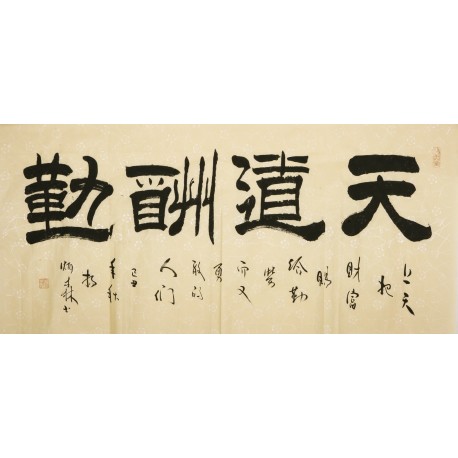 天道酬勤
上天把财富赐给勤劳而又勇敢的人们
己丑年秋